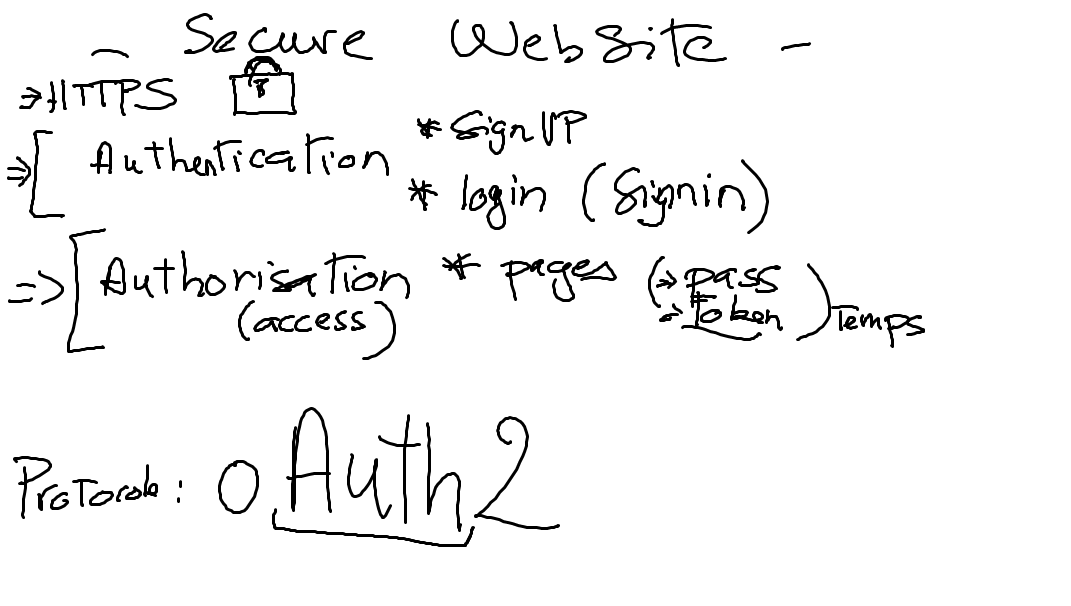 - Secure Website -
=> HTTPS
=> [ Authentication * SignUP
* login (Signin)
=> [ Authorisation * pages (-> pass
(access) -> Token) Temps
Protocole : OAuth2